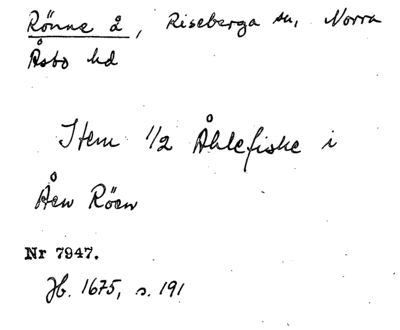 Rönne å, Riseberga sn, Norra
Åsbo hd
Item 1/2 Åhlefiske i
Åen Röen
Nr 7947.
Jb. 1675, s. 191